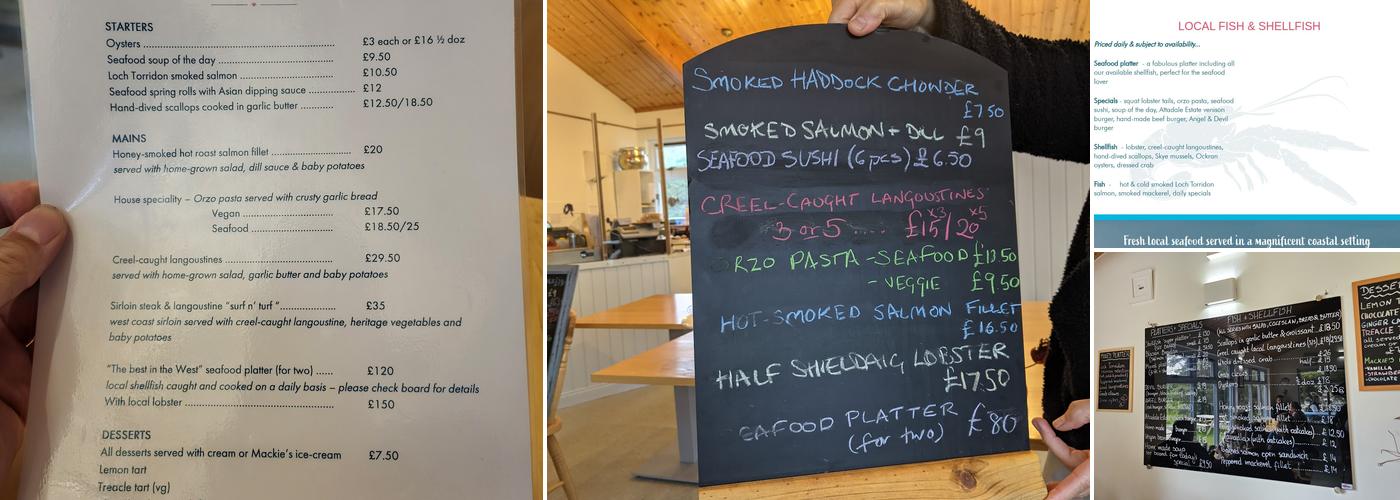 STARTERS
Oysters ........ £3 each or £16 ½ doz
Seafood soup of the day ........ £9.50
Loch Torridon smoked salmon ........ £10.50
Seafood spring rolls with Asian dipping sauce ........ £12
Hand-dived scallops cooked in garlic butter ........ £12.50/18.50
MAINS
Honey-smoked hot roast salmon fillet ........ £20
served with home-grown salad, dill sauce & baby potatoes
House speciality – Orzo pasta served with crusty garlic bread
Vegan ........ £17.50
Seafood ........ £18.50/25
Creel-caught langoustines ........ £29.50
served with home-grown salad, garlic butter and baby potatoes
Sirloin steak & langoustine "surf n' turf " ........ £35
west coast sirloin served with creel-caught langoustine, heritage vegetables and
baby potatoes
"The best in the West" seafood platter (for two) ...... £120
local shellfish caught and cooked on a daily basis – please check board for details
With local lobster ........ £150
DESSERTS
All desserts served with cream or Mackie's ice-cream £7.50
Lemon tart
Treacle tart (vg)
SMOKED HADDOCK CHOWDER
£7.50
SMOKED SALMON + DILL £9
SEAFOOD SUSHI (6 pcs) £6.50
CREEL-CAUGHT LANGOUSTINES
3 or 5 ..... £15/20
x3 x5
ORZO PASTA - SEAFOOD
- VEGGIE £9.50
HOT-SMOKED SALMON FILLET
£16.50
HALF SHIELDAIG LOBSTER
£17.50
SEAFOOD PLATTER £80
(for two)
LOCAL FISH & SHELLFISH
Priced daily & subject to availability...
Seafood platter - a fabulous platter including all
our available shellfish, perfect for the seafood
lover
Specials - squat lobster tails, orzo pasta, seafood
sushi, soup of the day, Attadale Estate venison
burger, hand-made beef burger, Angel & Devil
burger
Shellfish - lobster, creel-caught langoustines,
hand-dived scallops, Skye mussels, Ockran
oysters, dressed crab
Fish - hot & cold smoked Loch Torridon
salmon, smoked mackerel, daily specials
Fresh local seafood served in a magnificent coastal setting
PLATTERS + SPECIALS
FISH & SHELLFISH
(ALL SERVED WITH SALAD, COLESLAW, BREAD & BUTTER)
Scallops in garlic butter & croissant £18.50
Creel caught langoustines
Whole dressed crab
Oysters
Honey roast salmon fillet
salmon open sandwich £14
Peppered mackerel fillet £14
DESSE
LEMON
CHOCOLATE
GINGER
TREACLE
MACKIE'S
VANILLA
STRAWBER
CHOCOLATE